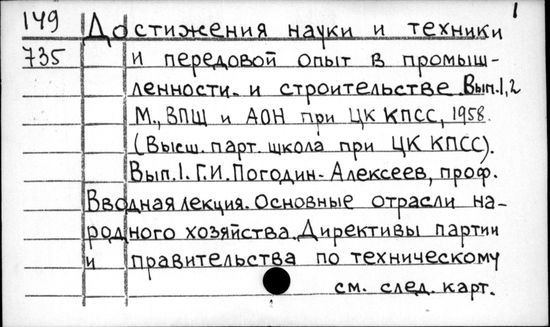 1
149 Достижения науки и техники
735 и передовой опыт в промыш-
ленности и строительстве. Вып.1,2
М., ВПШ и АОН при ЦК КПСС, 1958.
(Высш. парт. школа при ЦК КПСС).
Вып.1. Г.И.Погодин-Алексеев, проф.
Вводная лекция. Основные отрасли на-
родного хозяйства. Директивы партии
и правительства по техническому
см. след. карт.